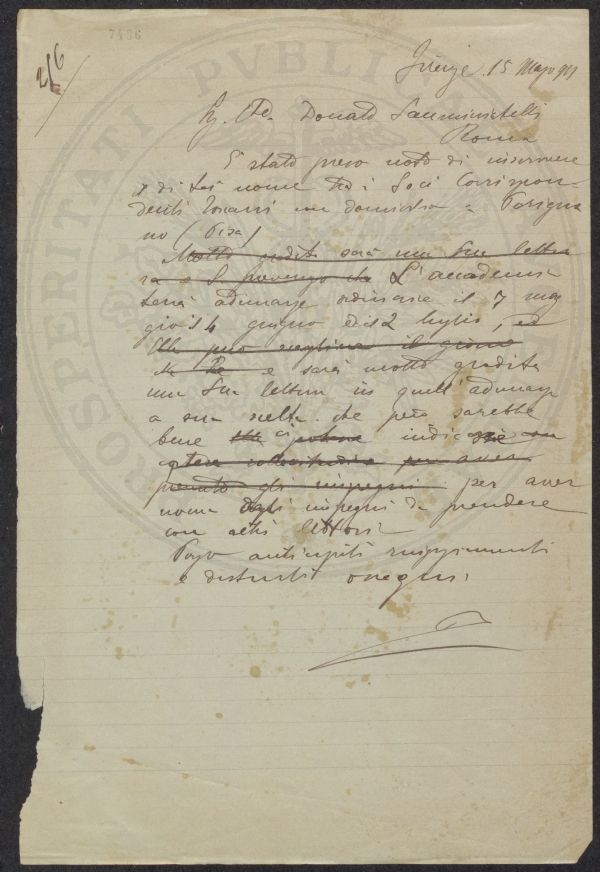 7486
2/6
Firenze 15 Marzo 901
Donato Sanminiatelli
Roma
È stato preso nota di inscrivere
di Lei nome tra i Soci Corrispon-
denti Toscani con domicilio a Perigna
no (Pisa)
Molto gradita sarà una Sua lettu
ra e L'accademia
terrà adunanze ordinarie il 7 mag
gio il 4 giugno ed il 2 luglio, ed
Ella però scegliere il giorno
che e sarà molto gradita
una Sua lettura in quell'adunanza
a sua scelta che però sarebbe
bene Ella ci indicasse con
sollecitudine per aver
gli impegni per aver
norma degli impegni da prendere
con altri lettori
Porgo anticipati ringraziamenti
e distinti ossequi.